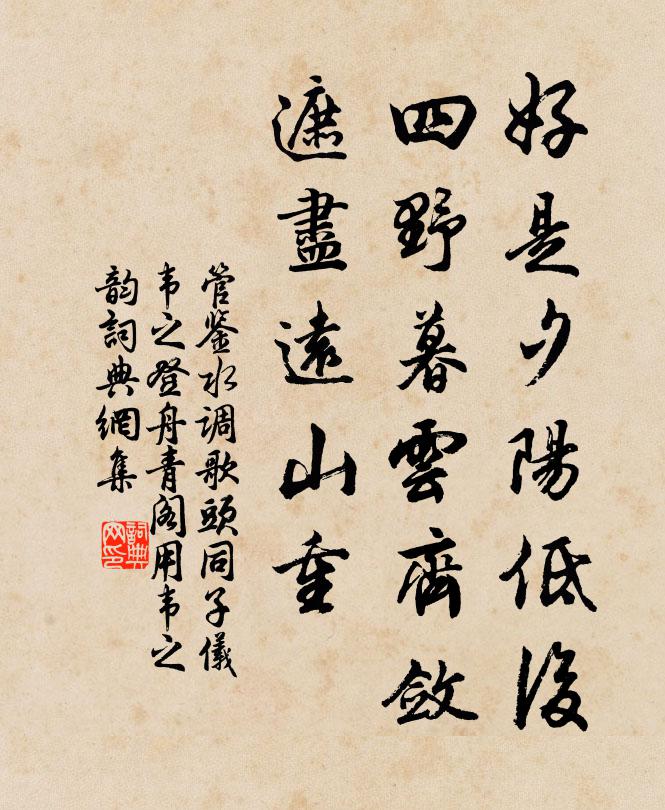 好是夕陽低後
四野暮雲齊斂
遮盡遠山重
管鉴水调歌頭同子儀
韦之登舟青阁用韦之
韵詞典網集
詞典網印